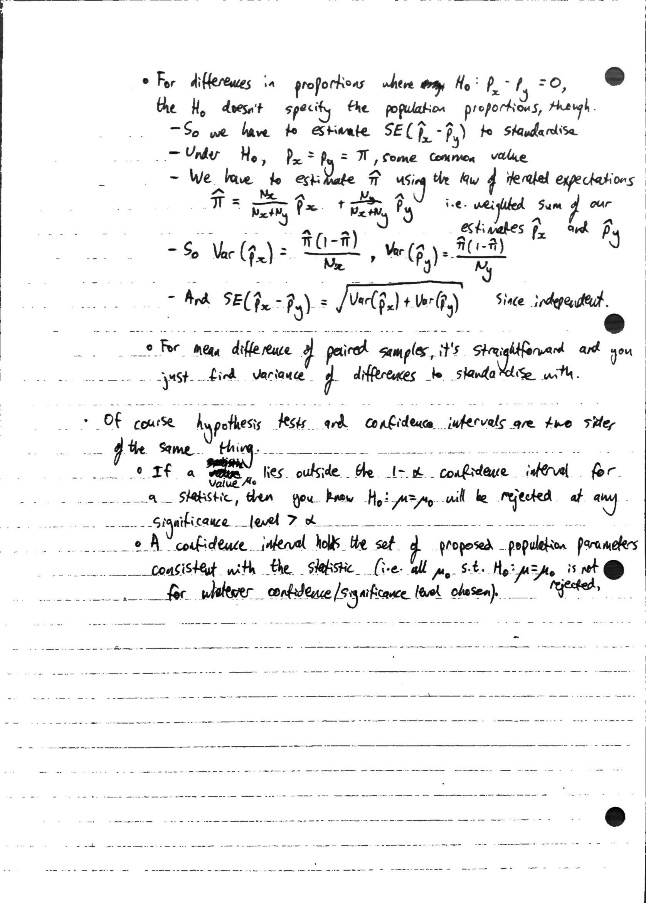 • For differences in proportions where H₀: Pₓ - P_y = 0,
the H₀ doesn't specify the population proportions, though.
- So we have to estimate SE(p̂ₓ - p̂_y) to standardise
- Under H₀, Pₓ = P_y = π, some common value
- We have to estimate π̂ using the law of iterated expectations
π̂ = Nₓ/(Nₓ+N_y) p̂ₓ + N_y/(Nₓ+N_y) p̂_y i.e. weighted sum of our
estimates p̂ₓ and p̂_y
- So Var(p̂ₓ) = π̂(1-π̂)/Nₓ , Var(p̂_y) = π̂(1-π̂)/N_y
- And SE(p̂ₓ - p̂_y) = √(Var(p̂ₓ) + Var(p̂_y)) since independent.
• For mean difference of paired samples, it's straightforward and you
just find variance of differences to standardise with.
· Of course hypothesis tests and confidence intervals are two sides
of the same thing.
• If a value μ₀ lies outside the 1-α confidence interval for
a statistic, then you know H₀: μ=μ₀ will be rejected at any
significance level > α
• A confidence interval holds the set of proposed population parameters
consistent with the statistic (i.e. all μ₀ s.t. H₀: μ=μ₀ is not
rejected,
for whatever confidence/significance level chosen).